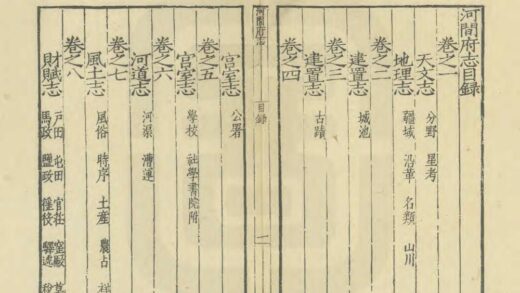 河間府志目録
卷之一
天文志
分野 星考
地理志
疆域 沿革 名類 山川
卷之二
建置志
城池
卷之三
建置志
古蹟
卷之四
河間府志
目録
一
宫室志
公署
卷之五
宫室志
學校 社學書院附
卷之六
河道志
河渠 漕運
卷之七
風土志
風俗 時序 土産 農占
卷之八
財賦志
戸田 屯田 官莊
馬政 鹽政 驛逓